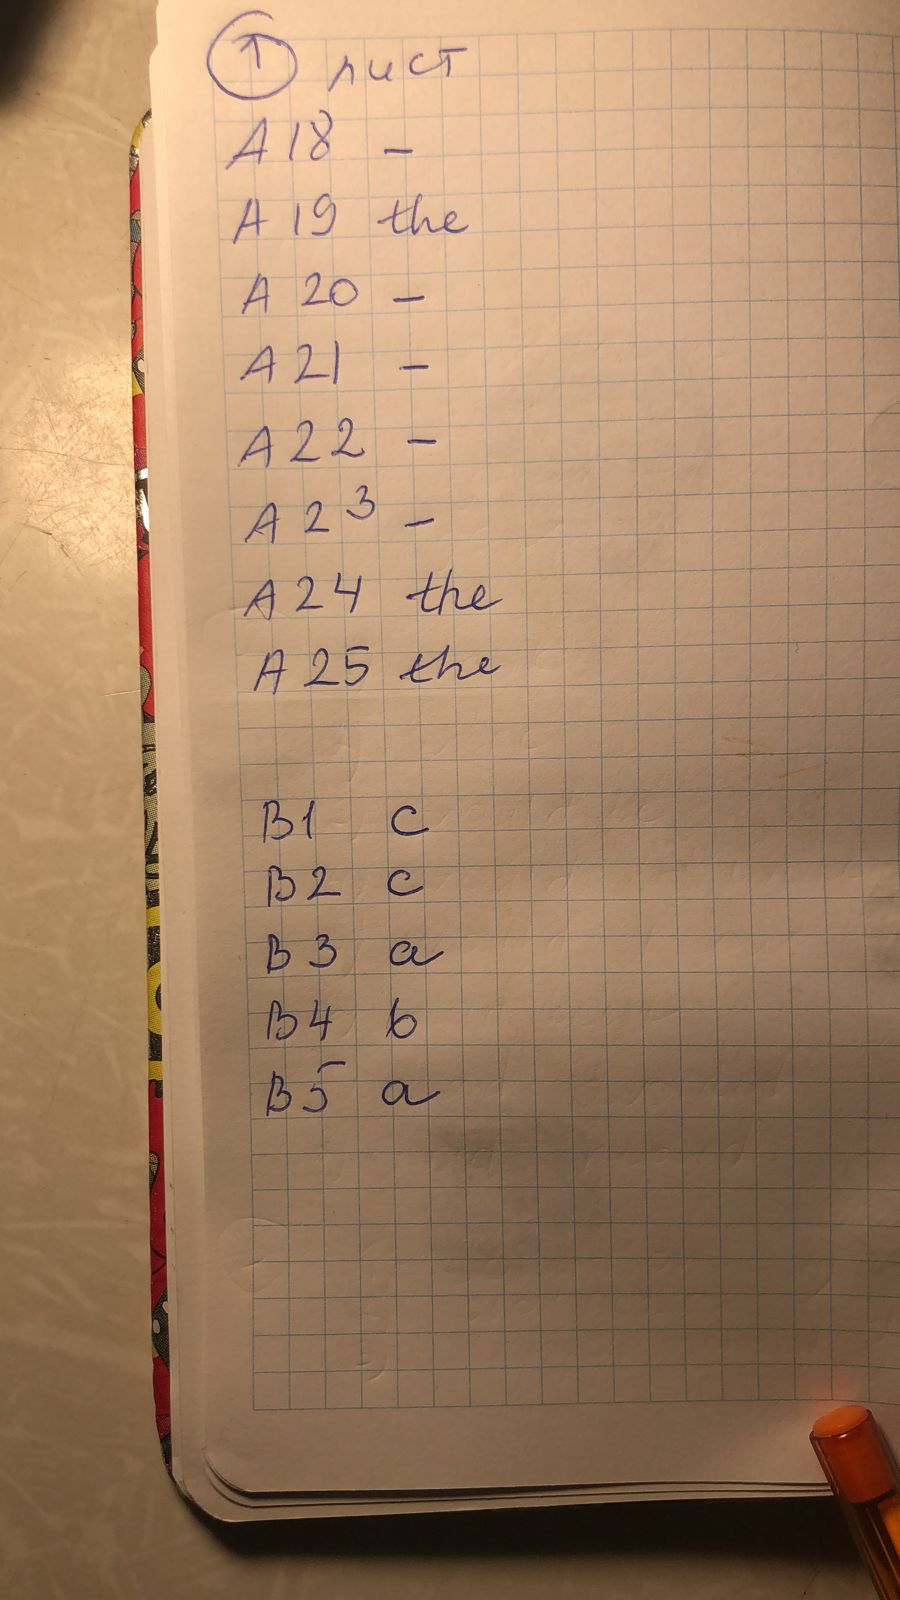 1 лист
A 18 –
A 19 the
A 20 –
A 21 –
A 22 –
A 23 –
A 24 the
A 25 the
B1 c
B2 c
B3 a
B4 b
B5 a